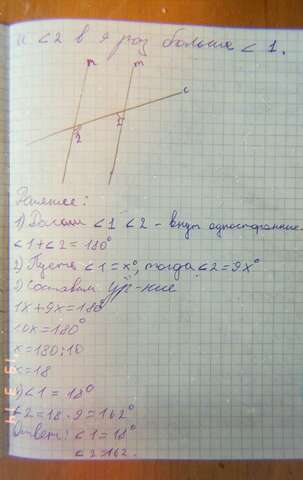 и ∠2 в 9 раз больше ∠1.
n m
c
2 1
Решение:
1) ∠1 ∠2 - внут односторонние.
∠1+∠2=180°
2) Пусть ∠1=x°, тогда ∠2=9x°
3) Составим ур-ние
1x+9x=180°
10x=180°
x=180:10
x=18
4) ∠1=18°
∠2=18·9=162°
Ответ: ∠1=18°
∠2=162.